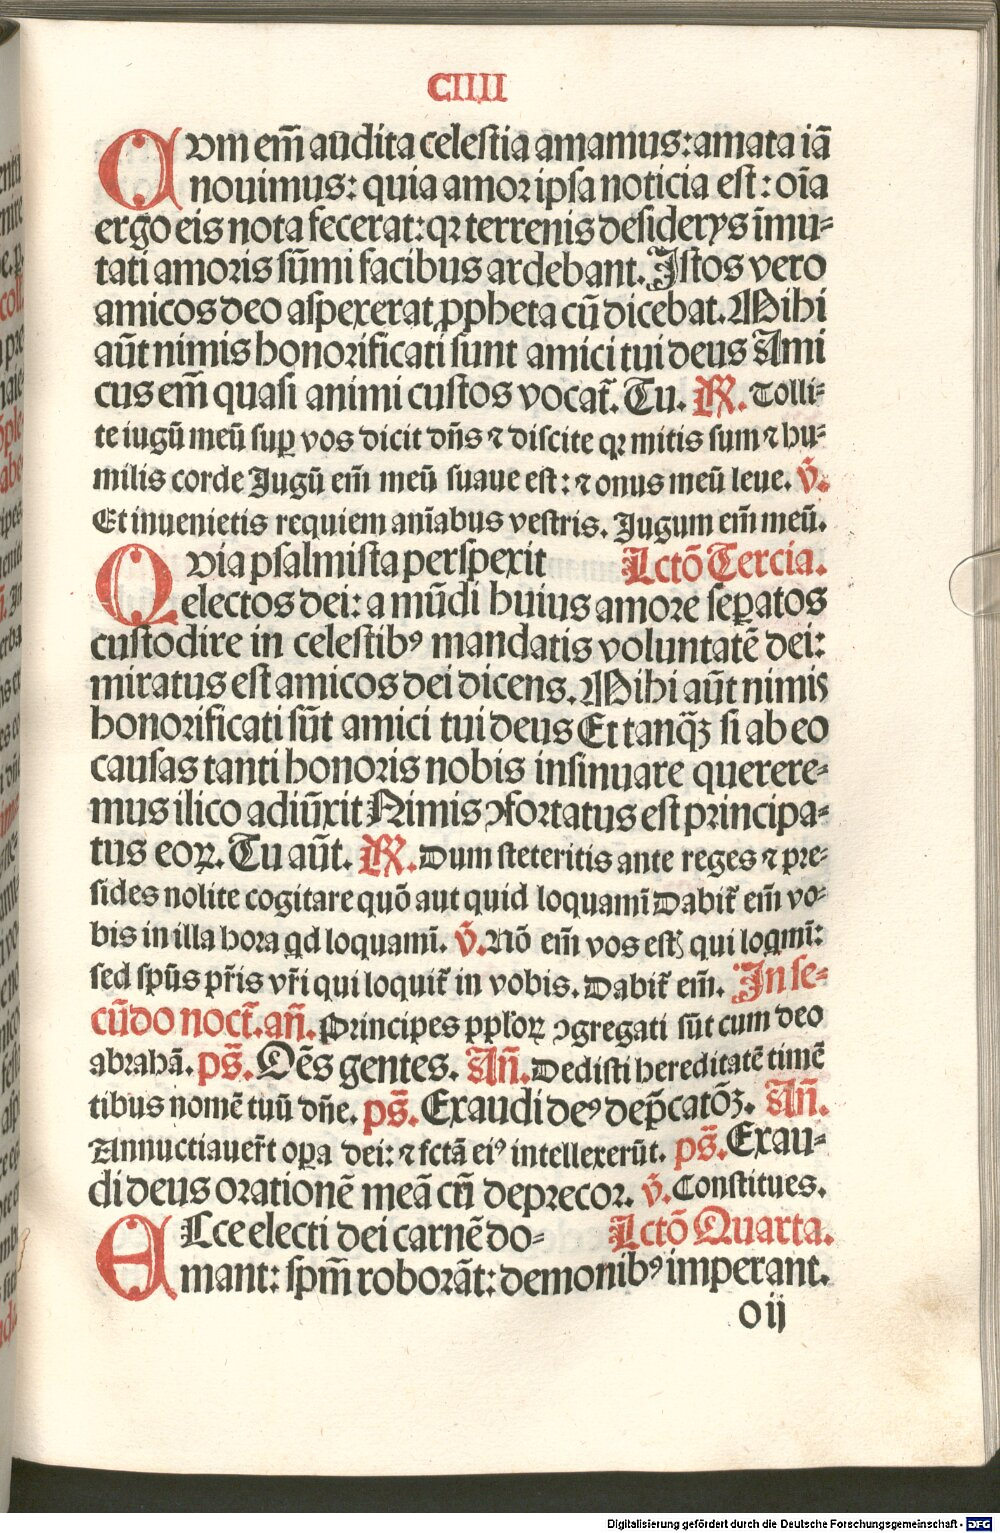 CIIII
Cvm em̄ audita celestia amamus: amata iā
nouimus: quia amor ipsa noticia est: oīa
ergo eis nota fecerat: qꝛ terrenis desiderys īmu-
tati amoris sūmi facibus ardebant. Istos vero
amicos deo aspexerat ꝓpheta cū dicebat. Mihi
aūt nimis honorificati sunt amici tui deus Ami
cus em̄ quasi animi custos vocat̄. Tu. R. Tolli-
te iugū meū suꝑ vos dicit dn̄s ⁊ discite qꝛ mitis sum ⁊ hu-
milis corde Jugū em̄ meū suaue est: ⁊ onus meū leue. v̄.
Et inuenietis requiem anīabus vestris. Jugum em̄ meū.
Qvia psalmista perspexit Lctō Tercia.
electos dei: a mūdi huius amore seꝑatos
custodire in celestibꝰ mandatis voluntatē dei:
miratus est amicos dei dicens. Mihi aūt nimis
honorificati sūt amici tui deus Et tanqꝫ̄ si ab eo
causas tanti honoris nobis insinuare querere-
mus ilico adiūxit Nimis ꝯfortatus est principa-
tus eoꝝ. Tu aūt. R. Dum steteritis ante reges ⁊ pre-
sides nolite cogitare quō aut quid loquamī Dabit̄ em̄ vo-
bis in illa hora qd loquamī. v̄. Nō em̄ vos estꝭ qui loqmī:
sed spūs pr̄is vr̄i qui loquit̄ in vobis. Dabit̄ em̄. In se-
cūdo noct̄. an̄. Principes ppl'oꝝ ꝯgregati sūt cum deo
abrahā. ps̄. Oēs gentes. An̄. Dedisti hereditatē timē
tibus nomē tuū dn̄e. ps̄. Exaudi deꝰ dep̄catōꝫ. An̄.
Annuctiauer̄t oꝑa dei: ⁊ fctā eiꝰ intellexerūt. ps̄. Exau-
di deus orationē meā cū deprecor. v̄. Constitues.
ELce electi dei carnē do- Lctō Quarta.
mant: spm̄ roborāt: demonibꝰ imperant.
o ij
Digitalisierung gefördert durch die Deutsche Forschungsgemeinschaft - DFG